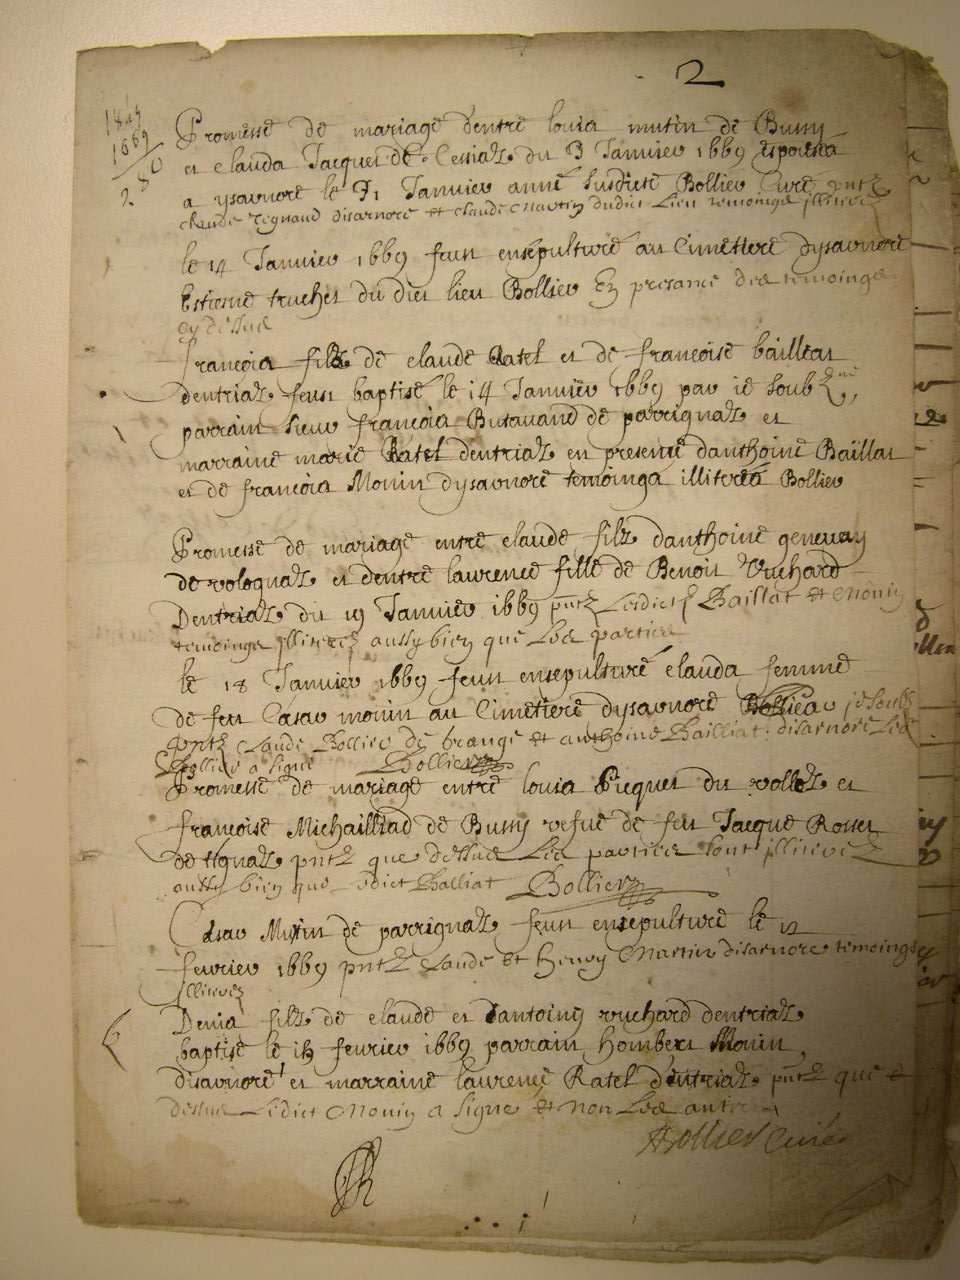 2
1669
280
Promesse de mariage dentre louis mutin de Bussy
et clauda Jacquet de Cessiaz du 3 Janvier 1669 espousés
a ysavnore le 31 Janvier anné susdicte Bollier Curé pntz
claude regnaud disarnore et claude Martin dudict lieu temoings illiterez
le 14 Janvier 1669 feut ensepulturé au Cimetiere dysavnore
Estienne truchet du dict lieu Bollier En presance des temoings
cy dessus
francois filz de claude Ratel et de francoise baillat
dentriaz feust baptisé le 14 Janvier 1669 par ie soubzné,
parrain sieur francois Butavand de parrignaz et
marraine marie Ratel dentriaz en presence danthoine Baillat
et de francois Monin dysavnore temoings illiterés Bollier
Promesse de mariage entre claude filz danthoine genevay
de volognaz et dentre laurence fille de Benoit Vuchard
Dentriaz du 19 Janvier 1669 pntz lesdictz Baillat et Monin
temoings illiterez aussy bien que les parties
le 18 Janvier 1669 feut ensepulturé clauda femme
de feu Cesar monin au Cimetiere dysavnore Bollier
pntz Claude Bollier de brange et anthoine Bailliat disarnore led
Bollier a signé Bollier
Promesse de mariage entre louis Picquet du volloz et
francoise Michailliad de Bussy vefue de feu Jacque Rosset
de pntz que dessus les parties sont illiterez
aussy bien que ledict Balliat Bollier
Cesar Mutin de parrignaz feut ensepulturé le
fevrier 1669 pntz Claude et Henry Martin disarnore temoings
illiterez
Denis filz de claude et dantoine vuchard dentriaz
baptisé le fevrier 1669 parrain Humbert Monin
disavnore et marraine laurence Ratel dentriaz pntz que
dessus ledict Monin a signe et non les autres
Bollier Curé